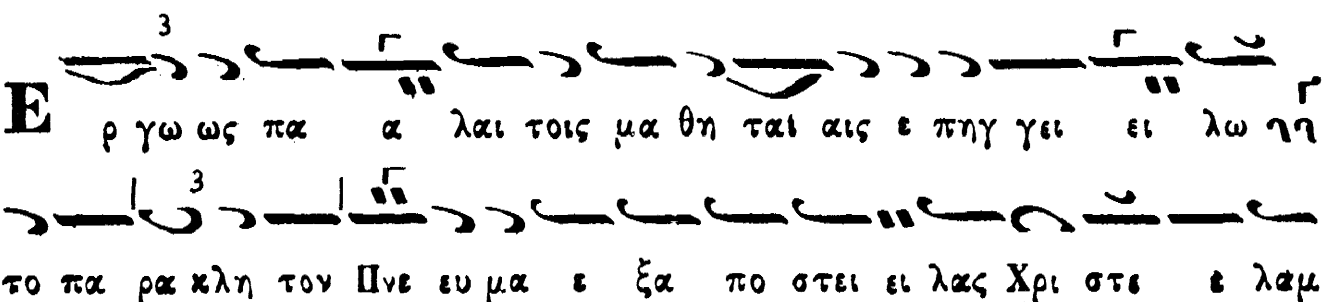 Ε ρ γω ως πα α λαι τοις μα θη ται αις ε πηγ γει ει λω
το πα ρα κλη τον Πνε ευ μα ε ξα πο στει ει λας Χρι στε ε λαμ